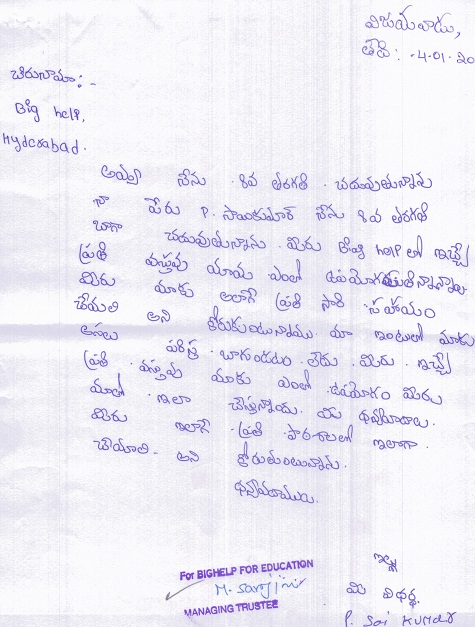 విజయవాడ,
తేది: -4-01-20
చిరునామా:-
Big help,
Hyderabad.
అయ్యా నేను 8వ తరగతి చదువుతున్నాను
నా పేరు P. సాయికుమార్ నేను 8వ తరగతి
బాగా చదువుతున్నాను. మీరు Big help లో ఇచ్చే
ప్రతి వస్తువు మాకు ఎంతో
మీరు మాకు అలాగే ప్రతి సారి సహాయం
చేయాలి అని కోరుకుంటున్నాము. మా ఇంటిలో మాకు
అసలు పరిస్థి బాగుండటం లేదు. మీరు ఇచ్చే
ప్రతి వస్తువు మాకు ఎంతో ఉపయోగం మీరు
మాతో ఇలా చేస్తున్నందు
మీరు ఇలాగే ప్రతి పాఠశాలలో ఇలాగా
చేయాలి - అని కోరుతుంటున్నాను.
ధన్యవాదములు.
ఇట్లు
మీ విధార్థి.
P. Sai Kumar
For BIGHELP FOR EDUCATION
M. Sarojini
MANAGING TRUSTEE